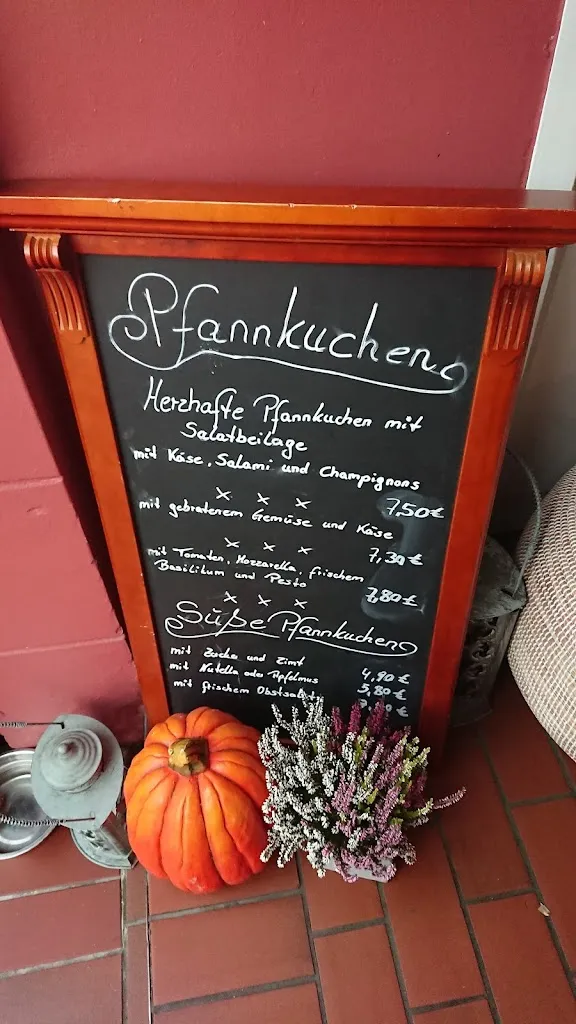 Pfannkuchen
Herzhafte Pfannkuchen mit
Salatbeilage
mit Käse, Salami und Champignons
x x x 7,50€
mit gebratenem Gemüse und Käse
x x x 7,30€
mit Tomaten, Mozzarella, frischem
Basilikum und Pesto
x x x 7,80€
Süße Pfannkuchen
mit Zucker und Zimt 4,90€
mit Nutella oder Apfelmus 5,80€
mit frischem €